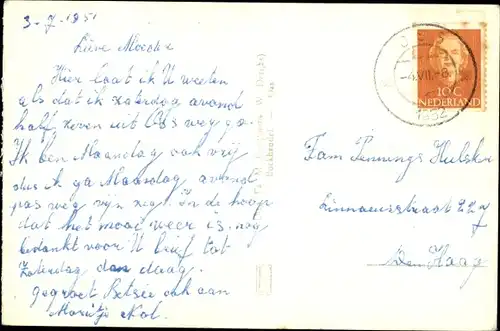 3-7-1951
Lieve Moeder
Hier laat ik U weeten
als dat ik zaterdag avond
half zeven uit Oss weg ga.
Ik ben Maandag ook vrij
dus ik ga Maandag avond
pas weg
in de hoop
dat het mooi weer is, nog
bedankt voor U brief tot
Zaterdag dan daag.
gegroet Betsie ook aan
Kol.
Fam Pennings Hulsker
Linnaeusstraat
Den Haag
10 C
NEDERLAND